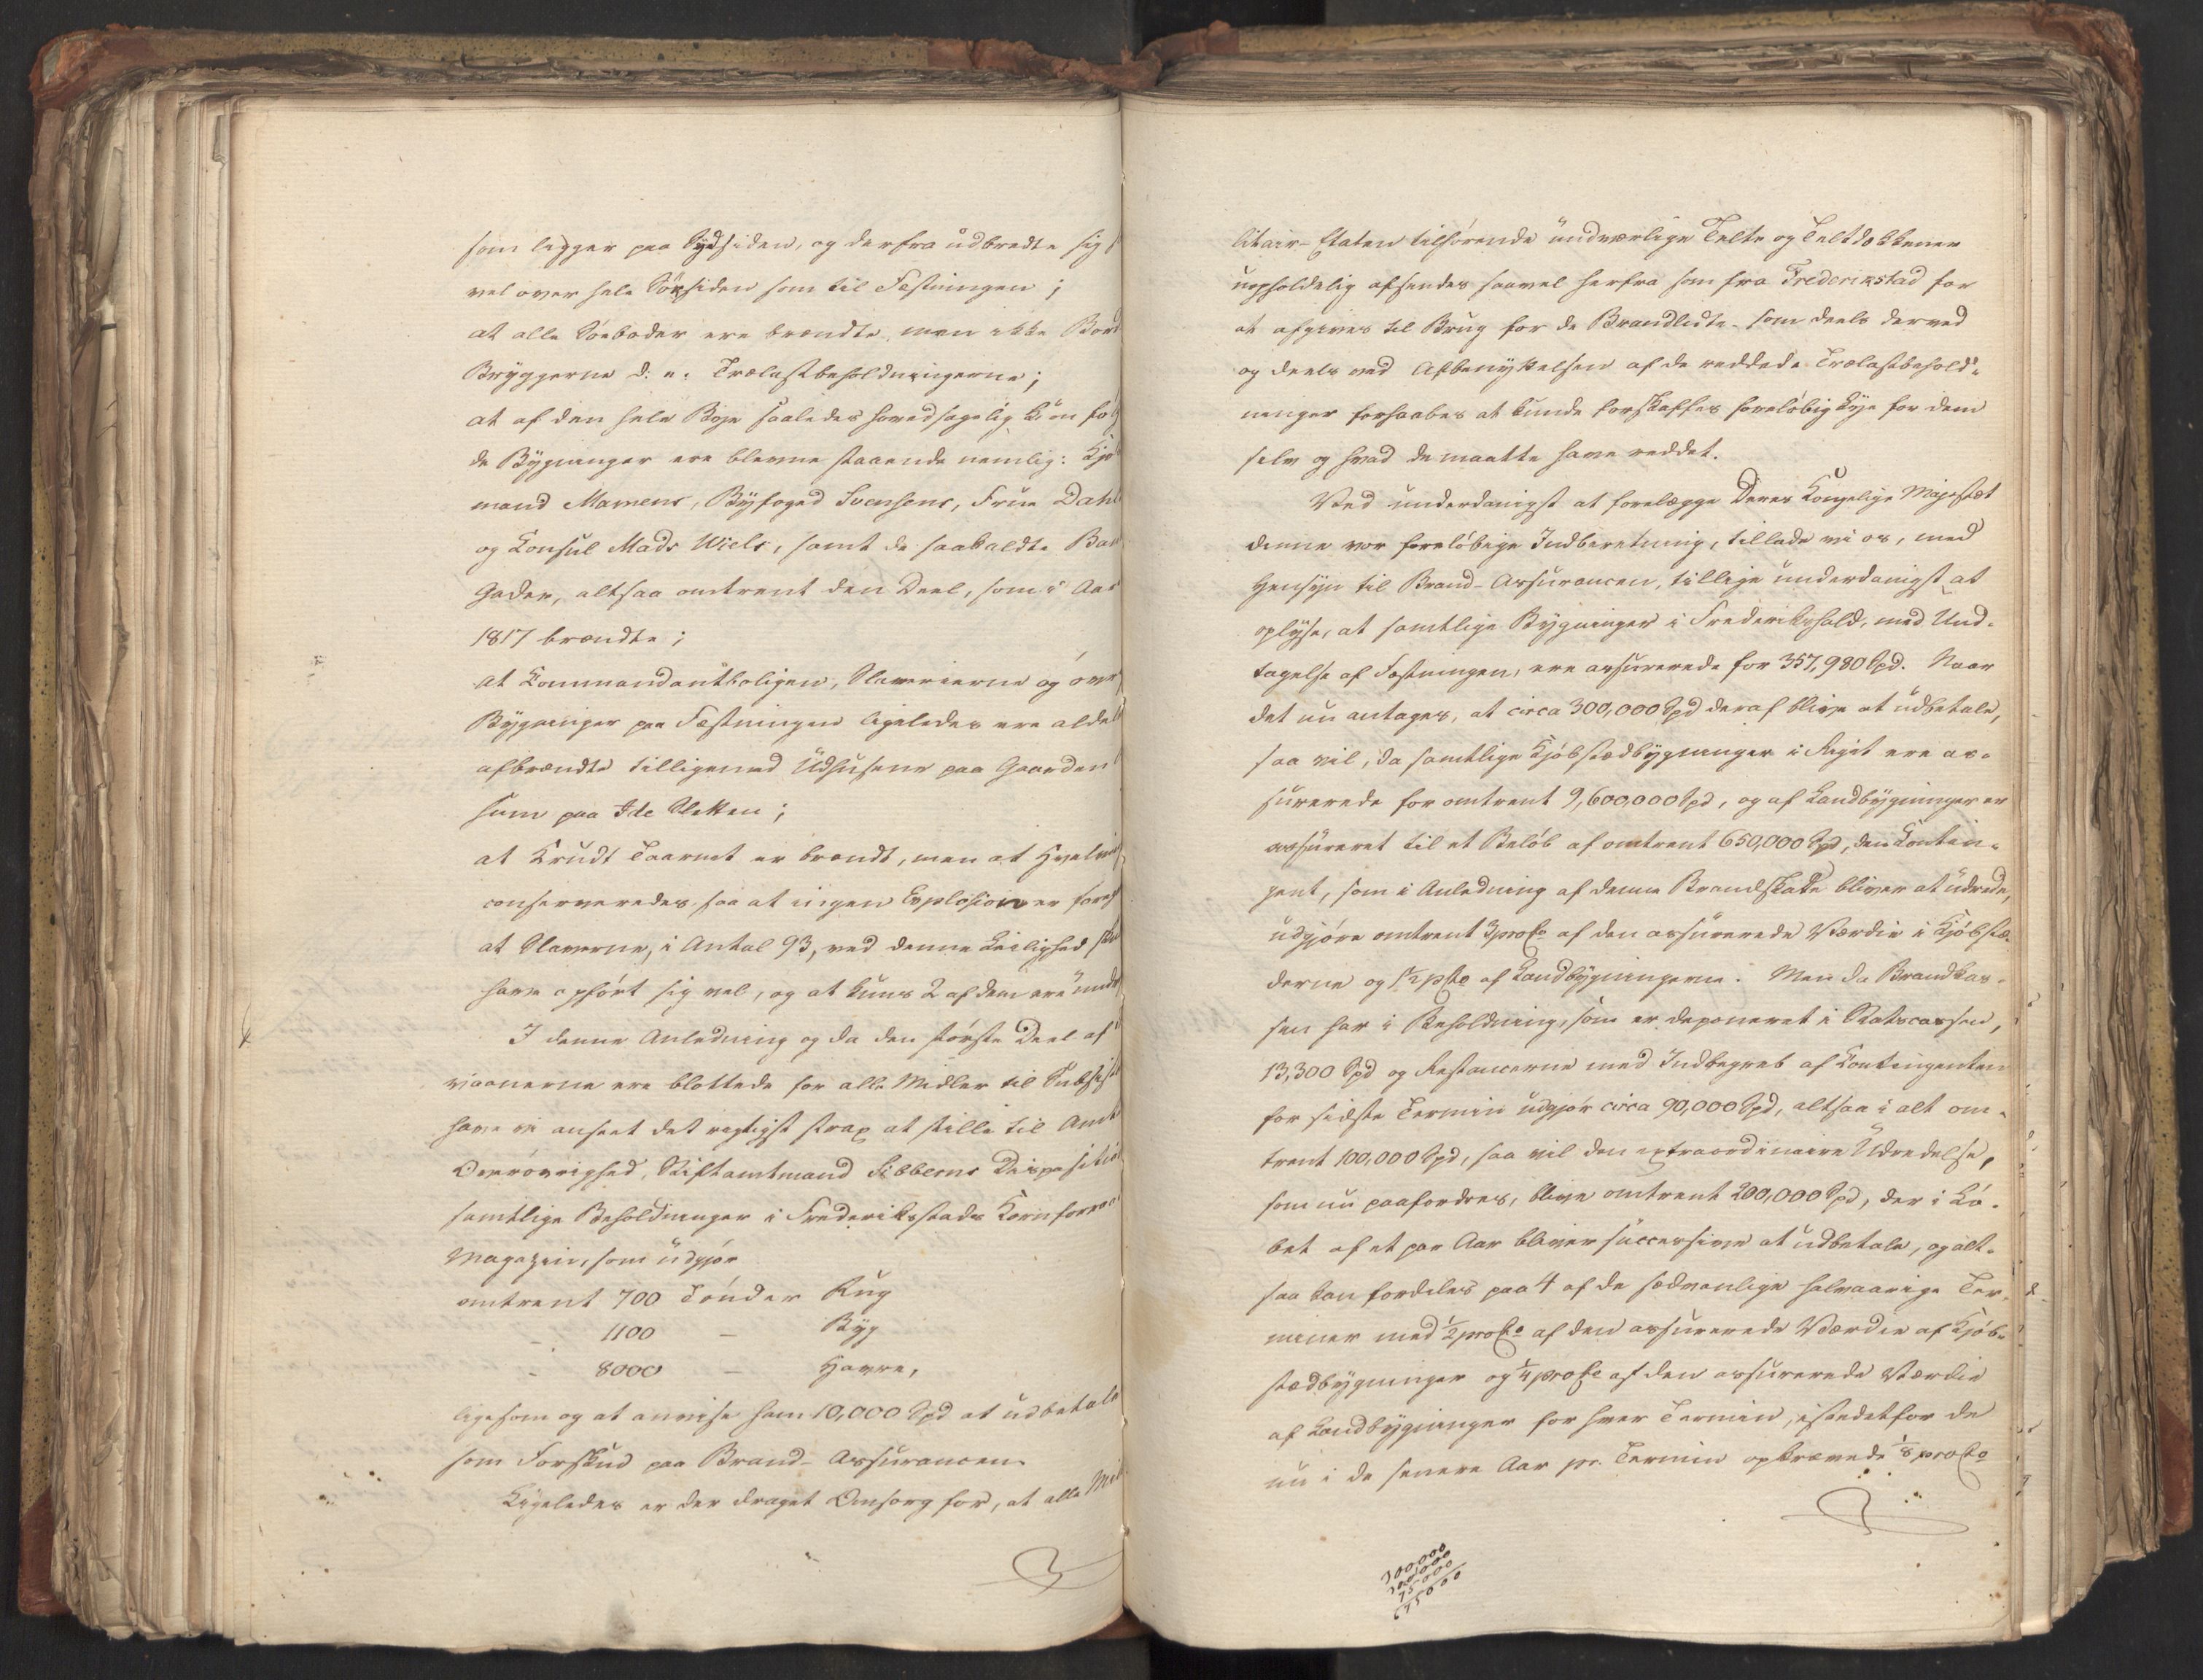 som ligger paa Sydsiden, og derfra udbredte sig s
vel over hele Nordsiden som til Fæstningen;
at alle Søeboder ere brændte, men ikke Bord
Bryggerne d: e: Trælastbeholdningerne;
at af den hele Bye saaledes hovedsagelig kun følg
de Bygninger ere blevne staaende nemlig: Kjø
mand Mamens, Byfoged Svensens, Frue Dahl
og Konsul Mads Wiels, samt de saakaldte Ban
Gader, altsaa omtrent den Deel, som i Aar
1817 brændte;
at Kommandantboligen, Slaverierne og øvr
Bygninger paa Fæstningen ligeledes ere aldel
afbrændte tilligemed Udhusene paa Gaarden
huus paa Ide Sletten;
at Krudt Taarnet er brændt, men at Hvelvin
conserveredes saa at ingen Explosion er foreg
at Slaverne, i Antal 93, ved denne Leilighed skul
have opført sig vel, og at kuns 2 af dem ere undv
I denne Anledning og da den største Deel af i
vaanerne ere blottede for alle Midler til Subsiste
have vi anseet det rigtigst strax at stille til Amt
Overøvrighed, Stiftamtmand Sibberns Disposition
samtlige Beholdninger i Frederiksstads Kornforraa
Magazin, som udgjør
omtrent 700 Tønder Rug
- 1100 - Byg
- 8000 - Havre,
ligesom og at anvise ham 10,000 Spd at udbetale
som Forskud paa Brand-Assurancen.
Ligeledes er der draget Omsorg for, at alle Mi
litair-Etaten tilhørende undværlige Telte og Teltdækkener
uopholdelig afsendes saavel herfra som fra Frederikstad for
at afgives til Brug for de Brandlidte - som deels derved
og deels ved Afbenyttelsen af de reddede Trælastbehold-
ninger forhaabes at kunde forskaffes foreløbig Lye for dem
selv og hvad de maatte have reddet.
Ved underdanigst at forelægge Deres Kongelige Majestæt
denne vor foreløbige Indberetning, tillade vi os, med
Hensyn til Brand-Assurancen, tillige underdanigst at
oplyse, at samtlige Bygninger i Frederikshald, med Und-
tagelse af Fæstningen, ere assurerede for 357,980 Spd. Naar
det nu antages, at circa 300,000 Spd deraf blive at udbetale,
saa vil, da samtlige Kjøbstædbygninger i Riget ere as-
surerede for omtrent 9,600,000 Spd, og af Landbygninger er
assureret til et Beløb af omtrent 650,000 Spd, den Kontin-
gent, som i Anledning af denne Brandskade bliver at udrede,
udgjøre omtrent 3 proCto af den assurerede Værdie i Kjøbstæ-
derne og 1½ pCto af Landbygningerne. Men da Brandkas-
sen har i Beholdning, som er deponeret i Statscassen,
13,300 Spd og Restancerne med Indbegreb af Kontingenten
for sidste Termin udgjør circa 90,000 Spd, altsaa i alt om-
trent 100,000 Spd, saa vil den extraordinaire Udredelse,
som nu paafordres, blive omtrent 200,000 Spd, der i Lø-
bet af et par Aar bliver successive at udbetale, og alt-
saa kan fordeles paa 4 af de sædvanlige halvaarige Ter-
miner med ½ proCto af den assurerede Værdie af Kjøb-
stædbygninger og ¼ proCto af den assurerede Værdie
af Landbygninger for hver Termin, istedetfor de
nu i de senere Aar pr. Termin opkrævede ⅛ proCto